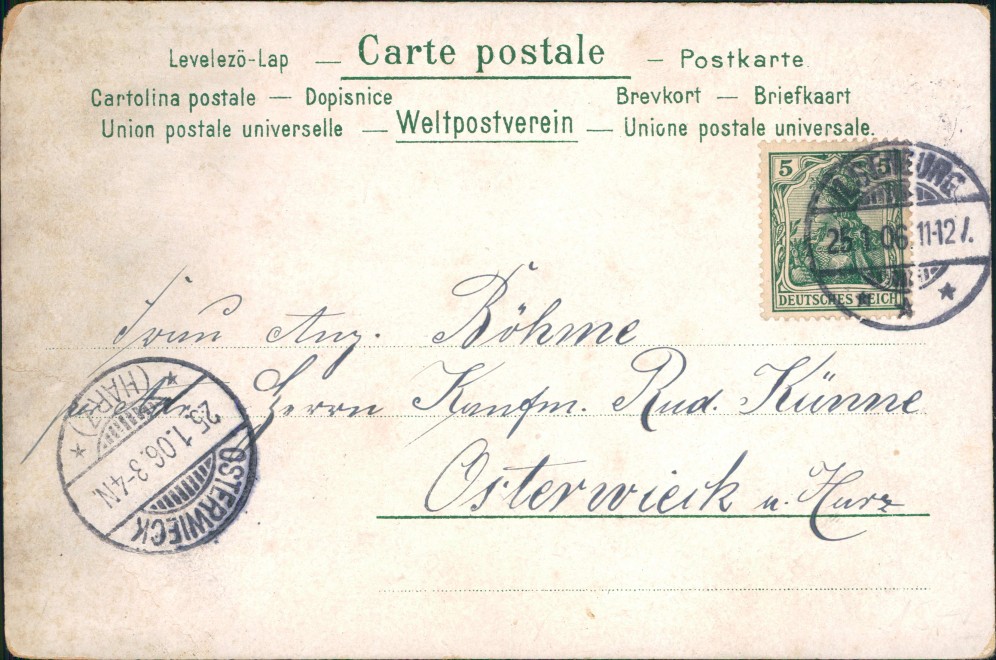 Levelezö-Lap — Carte postale — Postkarte
Cartolina postale — Dopisnice Brevkort — Briefkaart
Union postale universelle — Weltpostverein — Unione postale universale.
5 5
25.1.06. 11-12 V.
DEUTSCHES REICH
A
Frau Aug. Böhme
Herrn Kaufm. Rud. Künne
Osterwieck a. Harz
(HARZ)
25.1.06. 3-4N.
OSTERWIECK